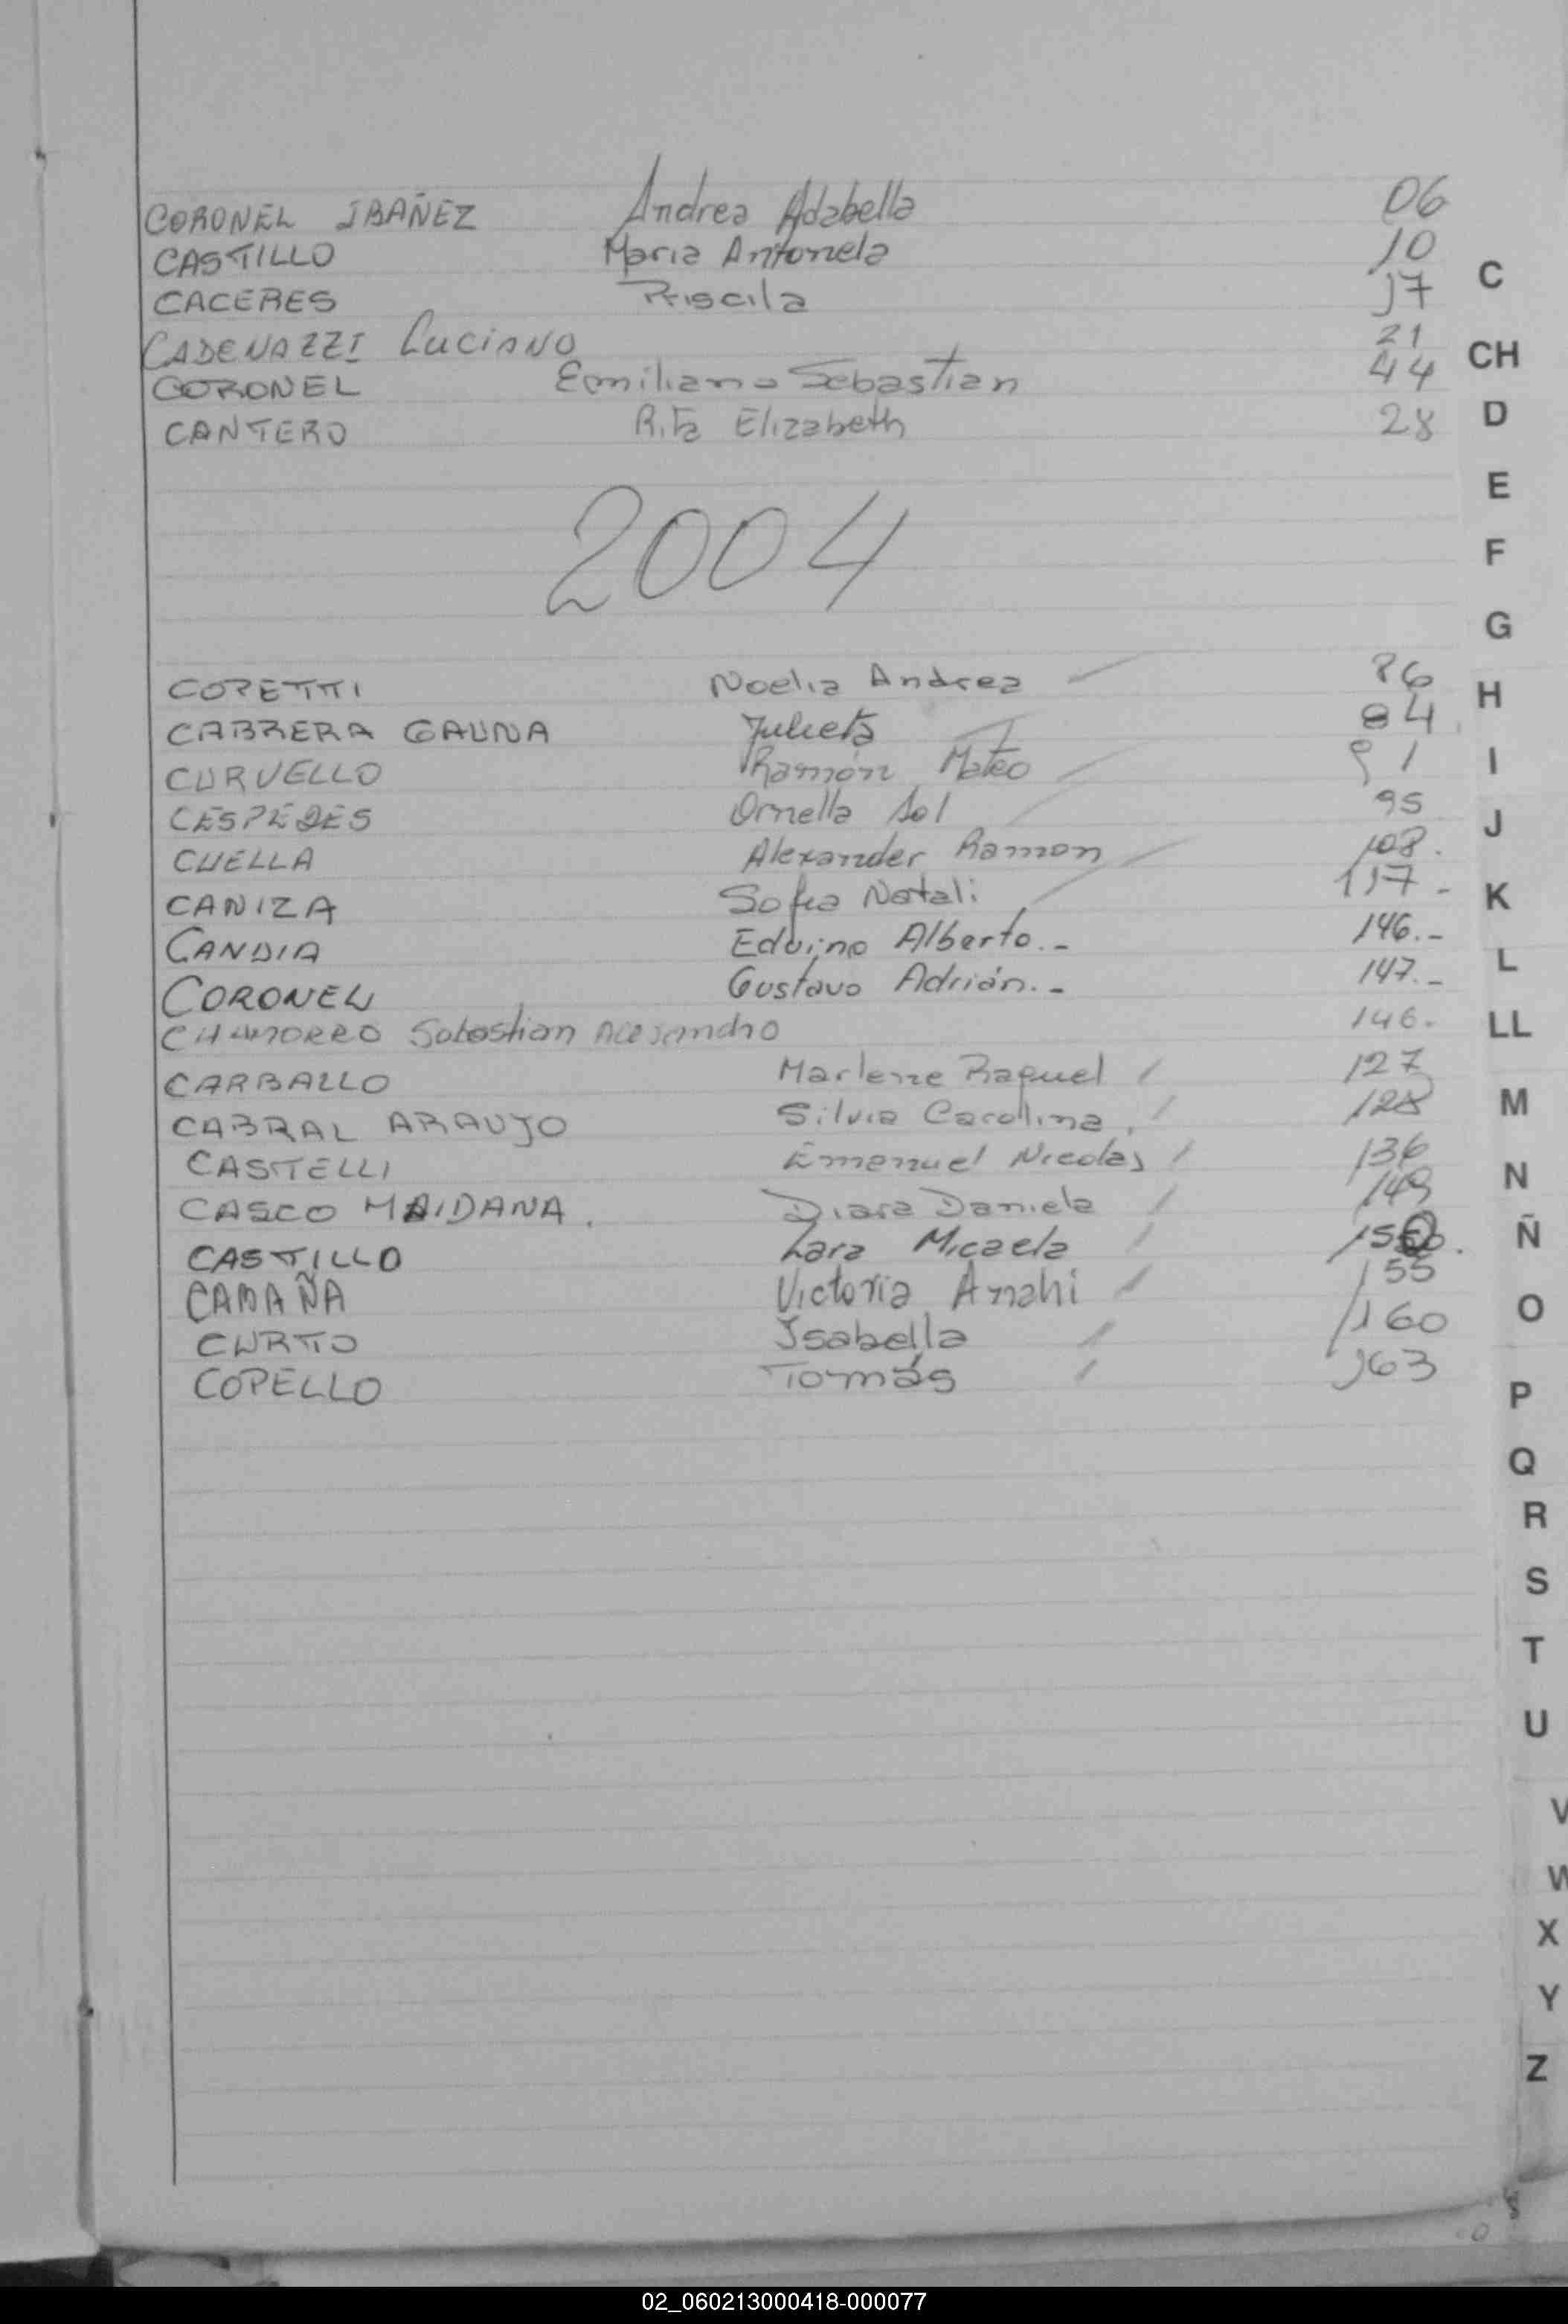 CORONEL IBAÑEZ Andrea Adabella 06
CASTILLO Maria Antonela 10
CACERES Priscila 17
CADENAZZI Luciano 21
CORONEL Emiliano Sebastian 44
CANTERO Rita Elizabeth 28
2004
COPETTI Noelia Andrea 86
CABRERA GAUNA Julieta 84
CURVELLO Ramón Mateo 91
CESPEDES Ornella Sol 95
CUELLA Alexander Ramon 108.
CANIZA Sofia Natali 117-
CANDIA Eduino Alberto.- 146.-
CORONEL Gustavo Adrián.- 147.-
CHAMORRO Sebastian Alejandro 146.
CARBALLO Marlene Raquel 127
CABRAL ARAUJO Silvia Carolina. 128
CASTELLI Emanuel Nicolas 136
CASCO MAIDANA. Diara Daniela 149
CASTILLO Zara Micaela
CAMAÑA Victoria Anahi 155
CURTO Isabella 160
COPELLO Tomás 163
C
CH
D
E
F
G
H
I
J
K
L
LL
M
N
Ñ
O
P
Q
R
S
T
U
V
W
X
Y
Z
02_060213000418-000077